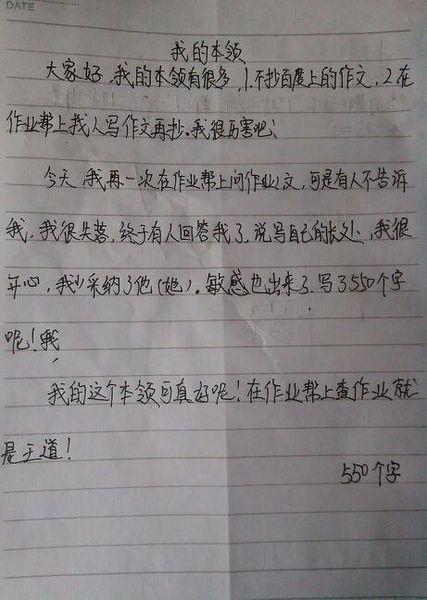 DATE
我的本领
大家好,我的本领有很多,1.不抄百度上的作文,2.在
作业帮上找人写作文再抄。我很历害吧!
今天,我再一次在作业帮上问作业文,可是有人不告诉
我,我很失落,终于有人回答我了,说写自己的长处,我很
开心,我采纳了他(她)。敏感也出来了,写了550个字
呢!我
我的这个本领可真好呢!在作业帮上查作业就
是王道!
550个字